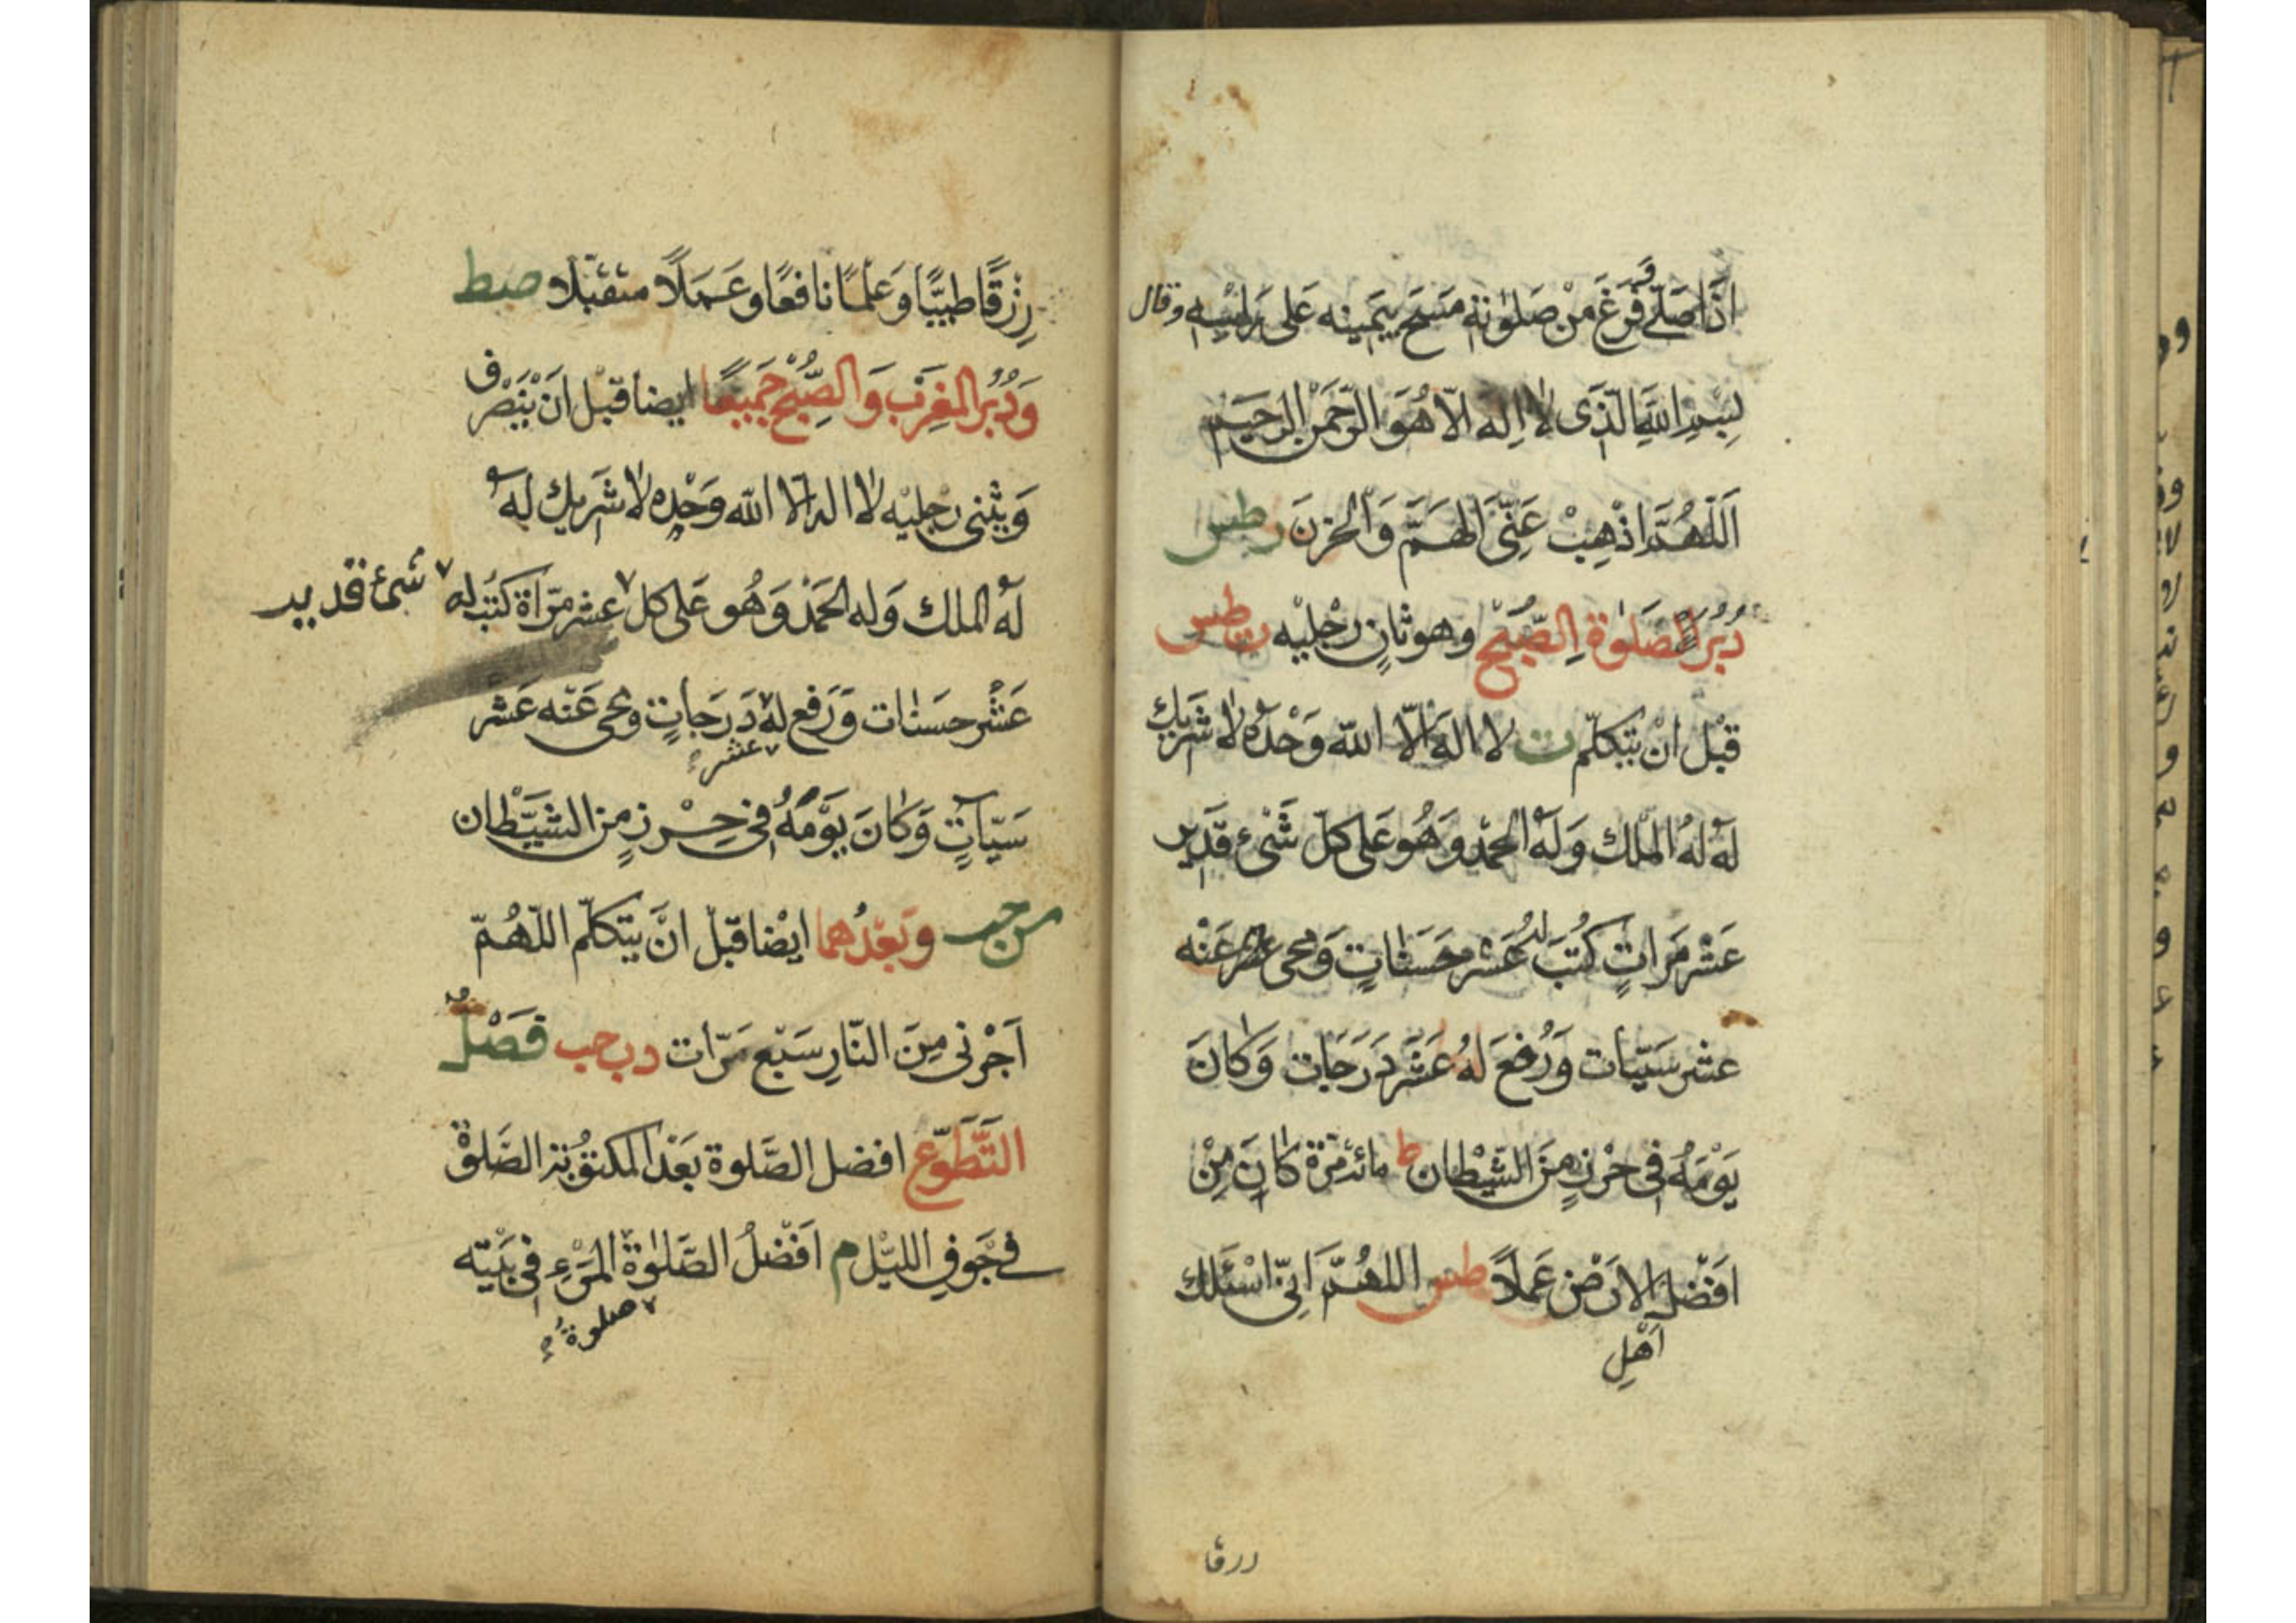 اذَا صَلّے وَفَرَغَ مِنْ صَلٰوتِهٖ مَسَحَ بِيَمِينِه عَلٰى رَاْسِهٖ وقال
بِسْمِ اللّٰهِ الَّذِى لَا اِلٰهَ اِلَّا هُوَ الرَّحْمٰنُ الرَّحِيْمُ
اَللّٰهُمَّ اذْهِبْ عَنِّى الهَمَّ وَالحَزنَ رطس
دُبُرَ الصَلٰوةِ الصُّبْحِ وهو ثانٍ رجْلَيْه ى طس
قَبْل انْ يتكلّم ت لا اله الّا اللّه وَحْدَهٗ لا شَرِيك
لَهٗ لهُ المُلك وَلَهُ الحَمْد وَهُو عَلى كلّ شَىْءٍ قَدِير
عَشْر مَرّاتٍ كُتبَ له عَشْر حَسَناتٍ وَمحى عَنْه
عشر سَيّئات وَرُفعَ لهُ عَشْر دَرَجَات وَكانَ
يَوْمَهٗ فِى حِرْزٍ مِنَ الشَّيْطان ط مائة مَرّة كانَ مِنْ
افضَل الارْضِ عَمَلاً طس اللهُمَّ انّى اسْئلك
اَهْلِ
ررقا
رِزقًا طيبًا وَعلمًا نافعًا وعَمَلًا متقبّلا صط
وَدُبُر المغرب وَالصُّبْح جَميعًا ايضا قبل ان يَنْصَرِف
وَيثْنى رجليْه لا اله الّا اللّه وَحْدَه لا شَرِيك لَهٗ
لَهُ الملك وَله الحَمْد وَهُو عَلى كل عشر مرّاة كتب له شىء قدير
عَشْر حسَنات وَرَفع له دَرَجاتٍ ومحى عَنه عَشْر
عشر
سَيّئاتٍ وَكانَ يَوْمَهٗ فى حِرْزٍ من الشيطان
س حب وبَعْدهما ايْضا قبْل انْ يتكلّم اللّهُمّ
اَجْرنى مِنَ النّارِ سَبْع مَرّات د س حب فَصْل
التَّطَوّع افضل الصَّلوة بَعْد المكتوبة الصَّلوة
فى جَوفِ الليْل م اَفْضلُ الصَّلٰوة المَرْءِ فى بَيْته
صلوة